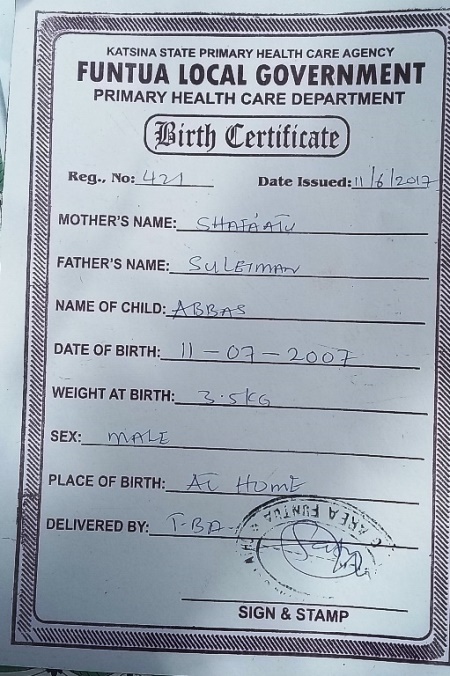 KATSINA STATE PRIMARY HEALTH CARE AGENCY
FUNTUA LOCAL GOVERNMENT
PRIMARY HEALTH CARE DEPARTMENT
Birth Certificate
Reg., No: 421 Date Issued: 11/6/2017
MOTHER'S NAME: SHAFA'ATU
FATHER'S NAME: SULEIMAN
NAME OF CHILD: ABBAS
DATE OF BIRTH: 11-07-2007
WEIGHT AT BIRTH: 3.5KG
SEX: MALE
PLACE OF BIRTH: AT HOME
DELIVERED BY: T.BA
AREA FUNTUA
SIGN & STAMP